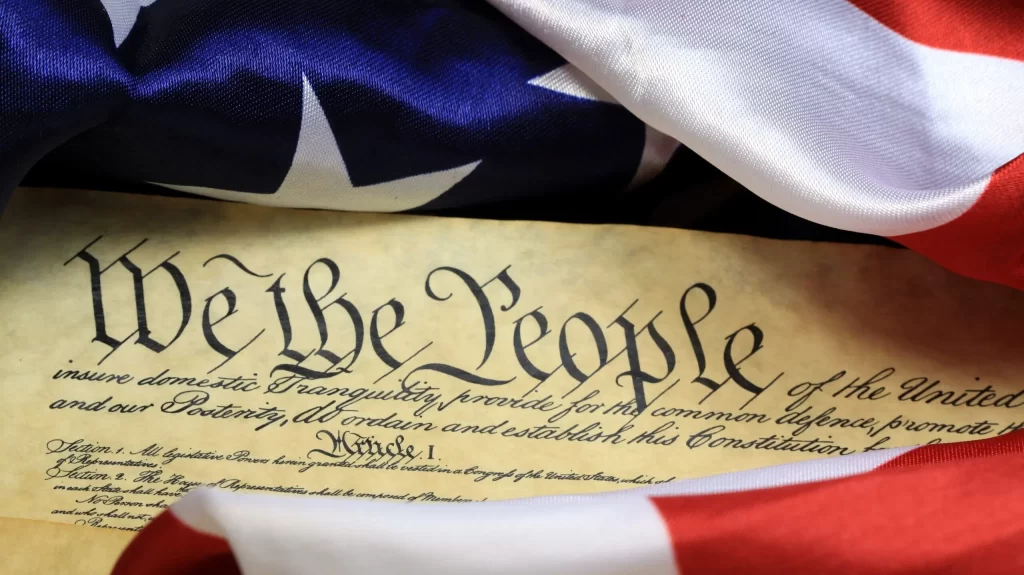 We the People of the United
insure domestic Tranquility, provide for the common defence, promote th
and our Posterity, do ordain and establish this Constitution f
Article I.
Section 1. All legislative Powers herein granted shall be vested in a Congress of the United States, which
of Representatives.
Section 2. The House of Representatives shall be composed of Members
in each State shall have
No Person sha
and who shall not,
Represent